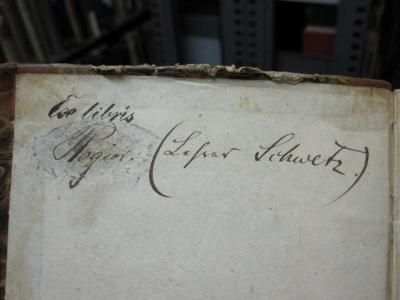 Ex libris
Rogier. (Lehrer Schwetz.)